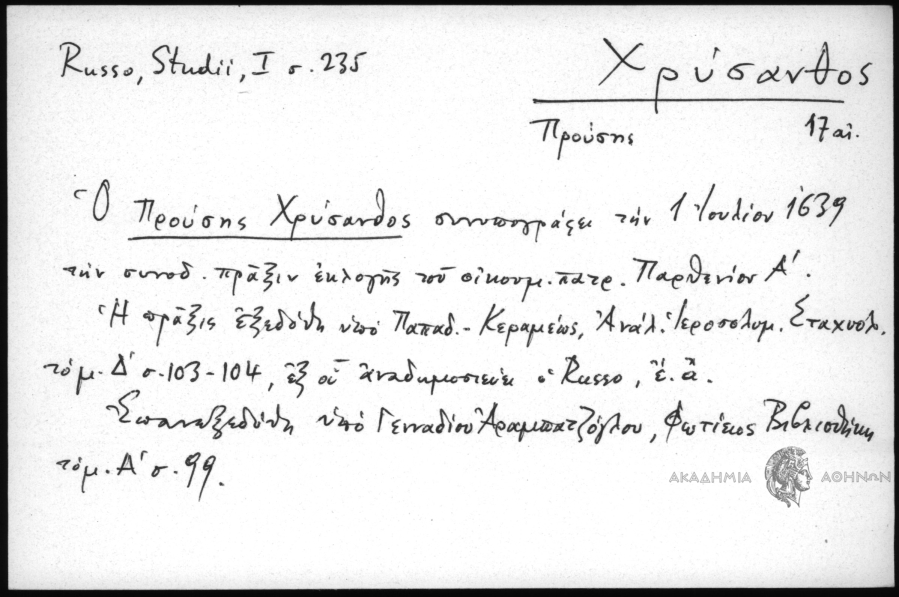 Russo, Studii, I σ. 235
Χρύσανθος
Προύσης 17 αἰ.
Ὁ Προύσης Χρύσανθος συνυπογράφει τὴν 1 Ἰουλίου 1639
τὴν συνοδ. πρᾶξιν ἐκλογῆς τοῦ οἰκουμ. πατρ. Παρθενίου Α΄.
Ἡ πρᾶξις ἐξεδόθη ὑπὸ Παπαδ.-Κεραμέως, Ἀνάλ. Ἱεροσολυμ. Σταχυολ.
τόμ. Δ΄ σ. 103-104, ἐξ οὗ ἀναδημοσιεύει ὁ Russo, ἔ. ἀ.
Ἐπανεξεδόθη ὑπὸ Γενναδίου Ἀραμπατζόγλου, Φωτίειος Βιβλιοθήκη
τόμ. Α΄ σ. 99.
ΑΚΑΔΗΜΙΑ ΑΘΗΝΩΝ